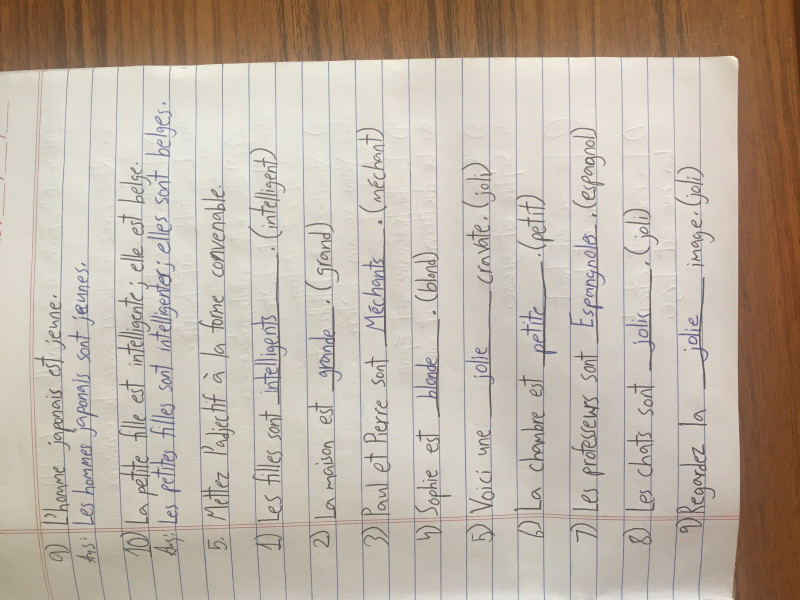 9) L'homme japonais est jeune.
Ans: Les hommes japonais sont jeunes.
10) La petite fille est intelligente; elle est belge.
Ans: Les petites filles sont intelligentes; elles sont belges.
5. Mettez l'adjectif à la forme convenable.
1) Les filles sont intelligents. (intelligent)
2) La maison est grande. (grand)
3) Paul et Pierre sont Méchants. (méchant)
4) Sophie est blonde. (blond)
5) Voici une jolie cravate. (joli)
6) La chambre est petite. (petit)
7) Les professeurs sont Espangnoles. (espagnol)
8) Les chats sont jolis. (joli)
9) Regardez la jolie image. (joli)